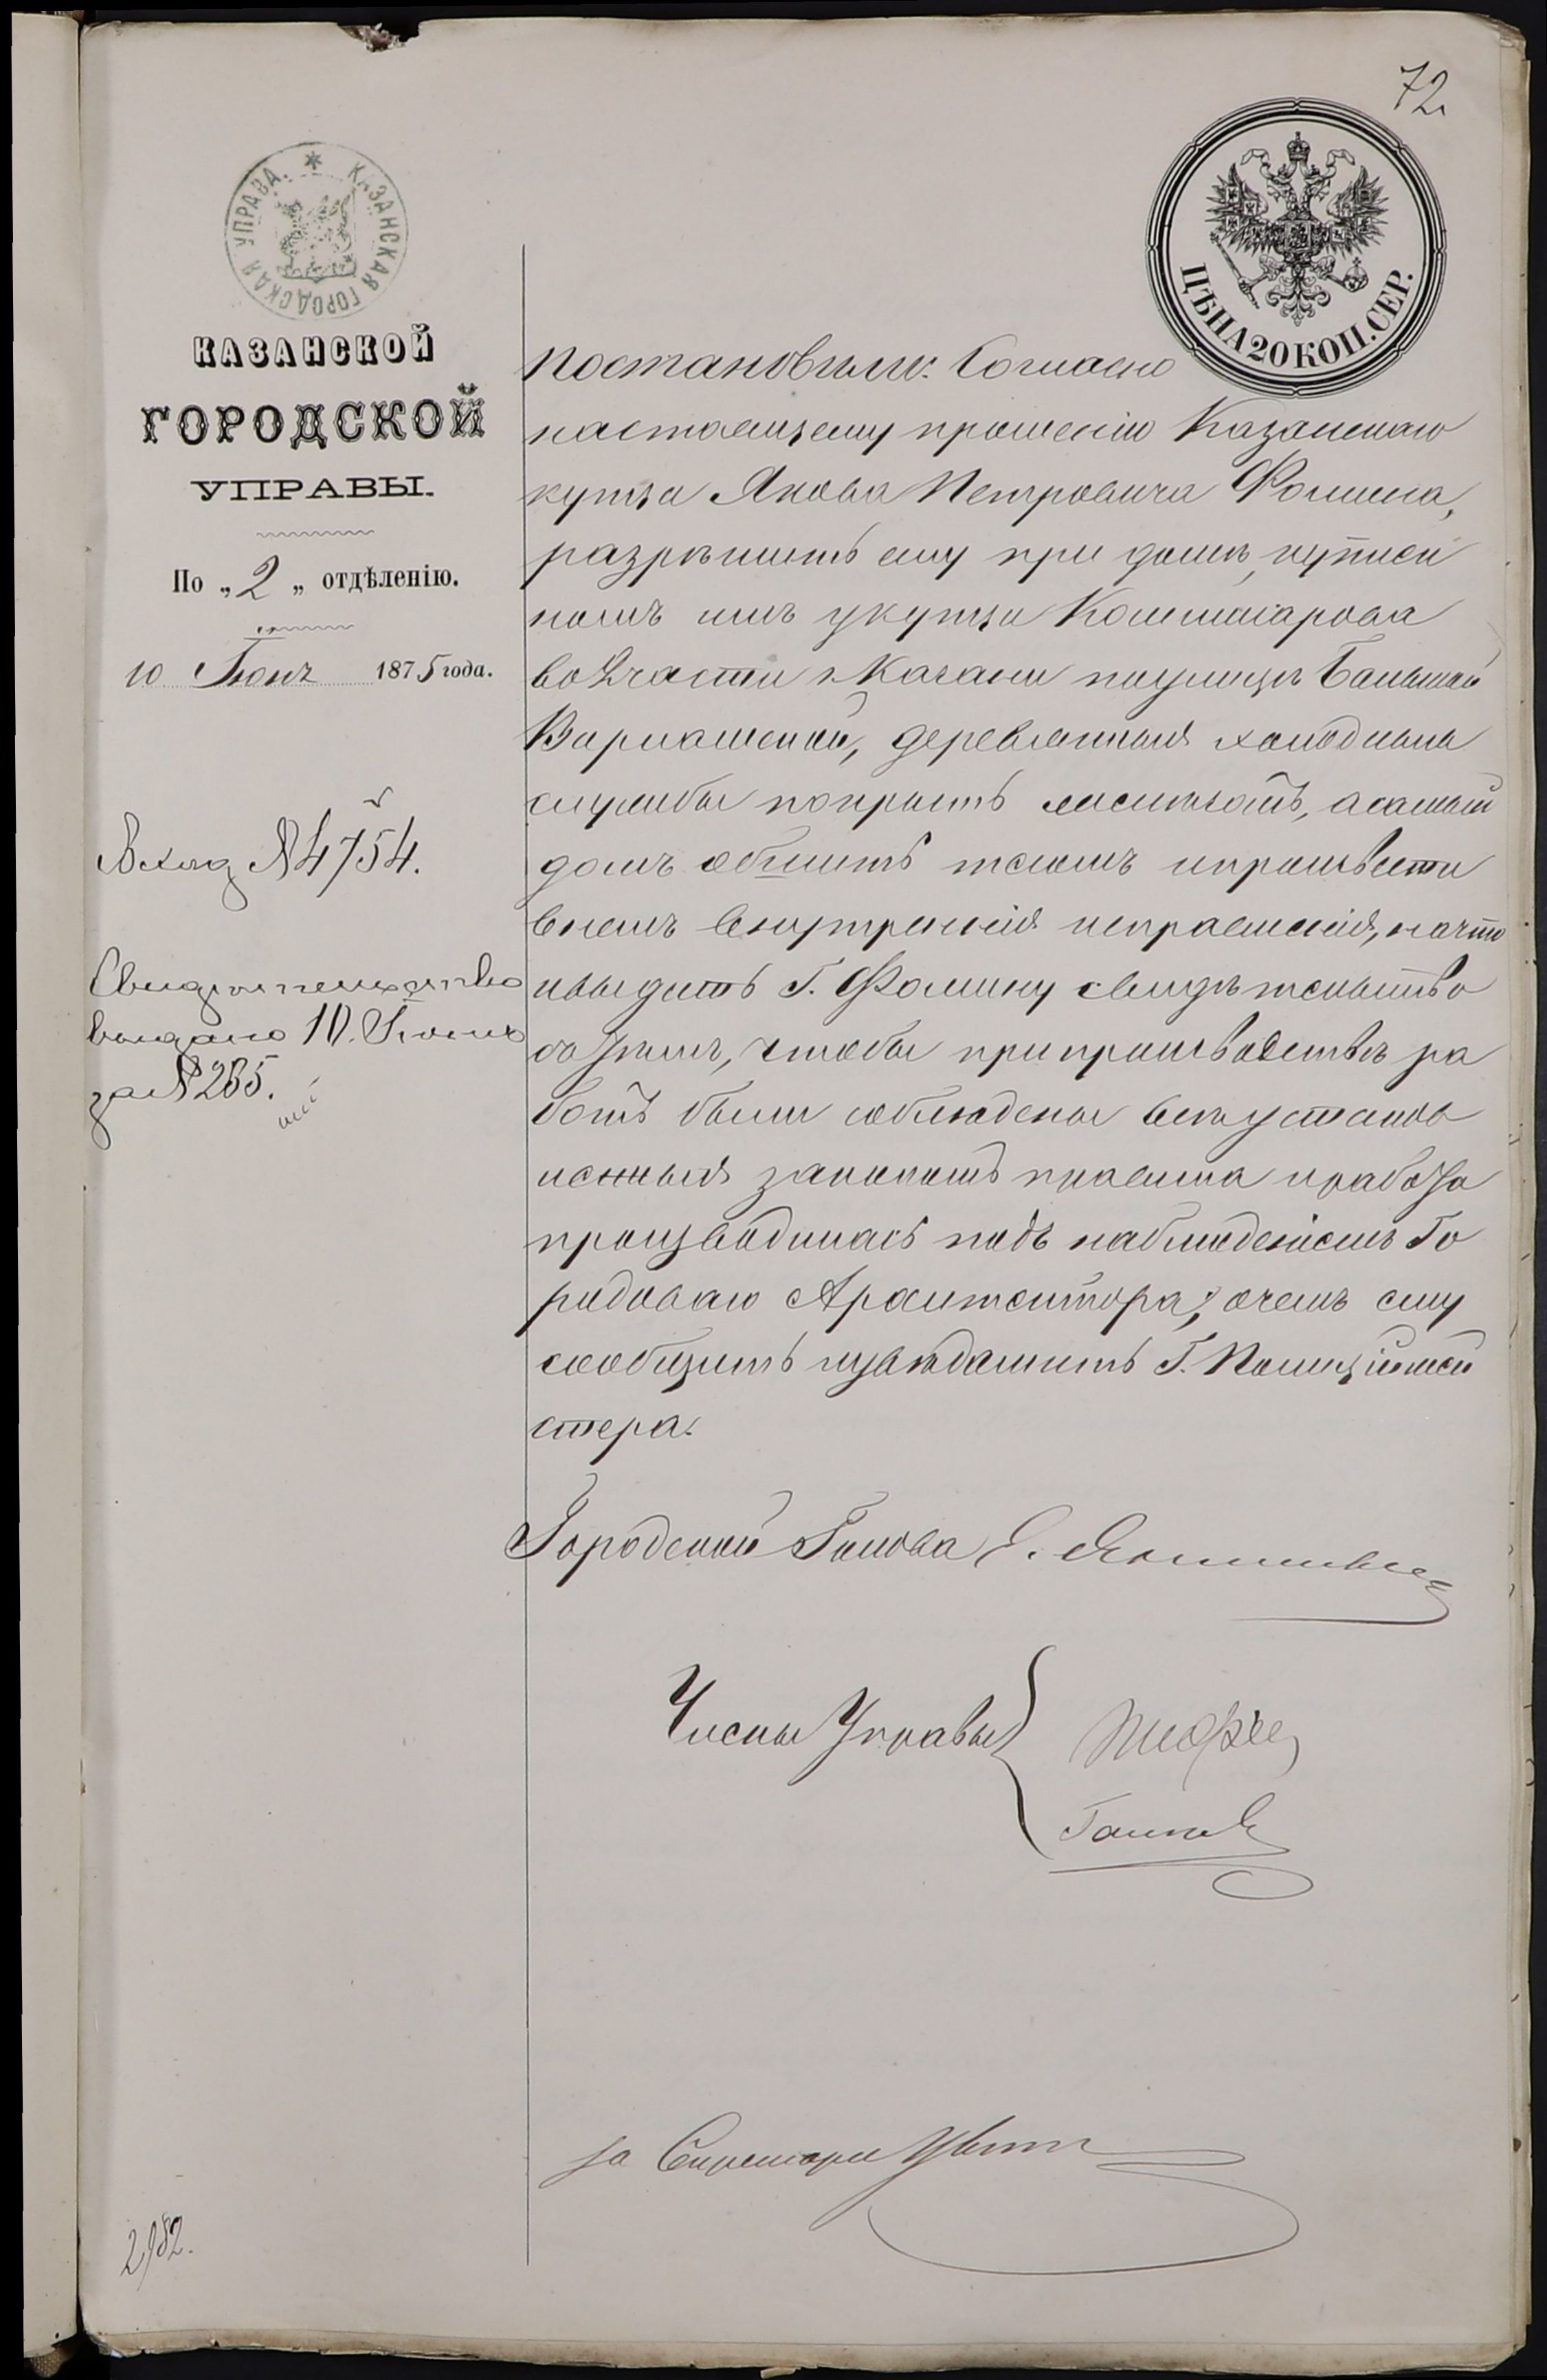 72
КАЗАНСКАЯ ГОРОДСКАЯ УПРАВА.
ЦѢНА 20 КОП. СЕР.
КАЗАНСКОЙ
ГОРОДСКОЙ
УПРАВЫ.
По „2„ отдѣленію.
10 Іюня 1875 года.
Вход № 4754.
Свидѣтельство
выдано 10. Іюня
за № 285.
постановили: Согласно
настоящему прошенію Казанскаго
купца Якова Петровича Фомина,
разрѣшить ему при домѣ, куплен
номъ имъ у купца Коммисарова
во 2 части г. Казани по улицѣ Большой
Варламской, деревянныя холодныя
службы покрыть желѣзомъ, а самый
домъ обшить тесомъ и произвести
въ немъ внутреннія исправленія, на что
и выдать Г. Фомину свидѣтельство
съ тѣмъ, чтобы при производствѣ ра
ботъ были соблюдены всѣ установ
ленныя закономъ правила и работа
производилась подъ наблюденіемъ Го
родоваго Архитектора; о чемъ ему
сообщить и увѣдомить Г. Полиціймей
стера.
Городской Голова Е.
Члены Управы
за Секретаря
2982.